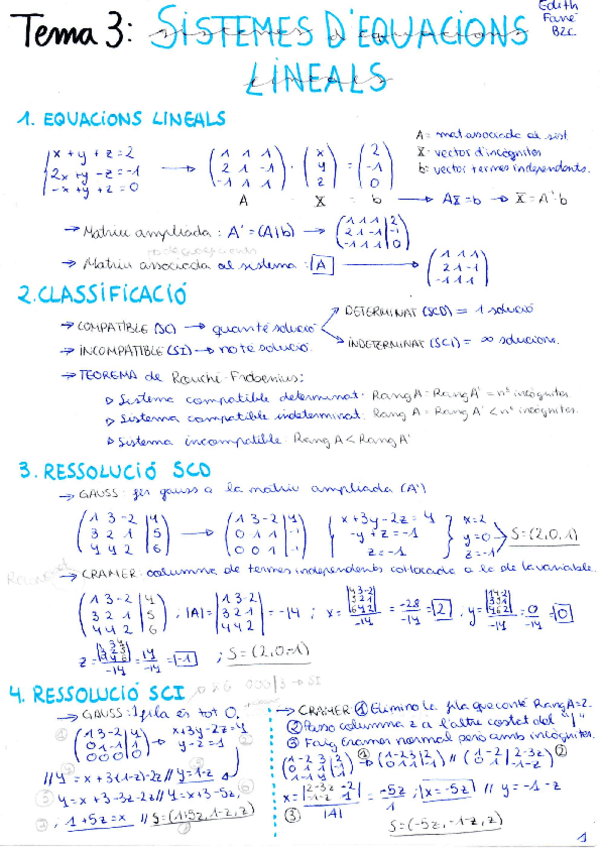 Tema 3: SISTEMES D'EQUACIONS
LINEALS
Edith
Fané
B2C
1. EQUACIONS LINEALS
x + y + z = 2
2x + y - z = -1
-x + y + z = 0
→ (1 1 1 / 2 1 -1 / -1 1 1) · (x / y / z) = (2 / -1 / 0)
A X b → AX = b → X = A⁻¹·b
A = mat associada al sist.
X = vector d'incògnites
b = vector termes independents.
→ Matriu ampliada: A' = (A|b) → (1 1 1 | 2 / 2 1 -1 | -1 / -1 1 1 | 0)
→ Matriu associada al sistema: A → (1 1 1 / 2 1 -1 / -1 1 1)
2. CLASSIFICACIÓ
→ COMPATIBLE (SC) → quan té solució
DETERMINAT (SCD) = 1 solució
INDETERMINAT (SCI) = ∞ solucions.
→ INCOMPATIBLE (SI) → no té solució.
→ TEOREMA de Rouché-Frobenius:
▷ Sistema compatible determinat: Rang A = Rang A' = nº incògnites
▷ Sistema compatible indeterminat: Rang A = Rang A' < nº incògnites.
▷ Sistema incompatible: Rang A < Rang A'
3. RESSOLUCIÓ SCD
→ GAUSS: fer gauss a la matriu ampliada (A')
(1 3 -2 | 4 / 3 2 1 | 5 / 4 4 2 | 6) → (1 3 -2 | 4 / 0 1 1 | -1 / 0 0 1 | -1)
x + 3y - 2z = 4
-y + z = -1
z = -1
x = 2
y = 0
z = -1
S = (2, 0, 1)
→ CRAMER: columna de termes independents col·locada a la de la variable.
(1 3 -2 | 4 / 3 2 1 | 5 / 4 4 2 | 6) ; |A| = |1 3 -2 / 3 2 1 / 4 4 2| = -14 ; x = -28/-14 = 2 , y = 0/-14 = 0
z = 14/-14 = -1 ; S = (2, 0, -1)
4. RESSOLUCIÓ SCI
→ GAUSS: 1 fila és tot 0.
(1 3 -2 | 4 / 0 1 -1 | 1 / 0 0 0 | 0) → x + 3y - 2z = 4
y - z = 1
// 4 = x + 3(1-z) - 2z // y = 1-z
4 = x + 3 - 3z - 2z // 4 = x + 3 - 5z
1 + 5z = x // S = (1+5z, 1-z, z)
→ CRAMER ① Elimino la fila que conté Rang A = 2.
② Passo columna z a l'altre costat del "|"
③ Faig Cramer normal però amb incògnites.
x = -5z/1 ; x = -5z // y = -1 - z
|A|
③
S = (-5z, -1-z, z)
1